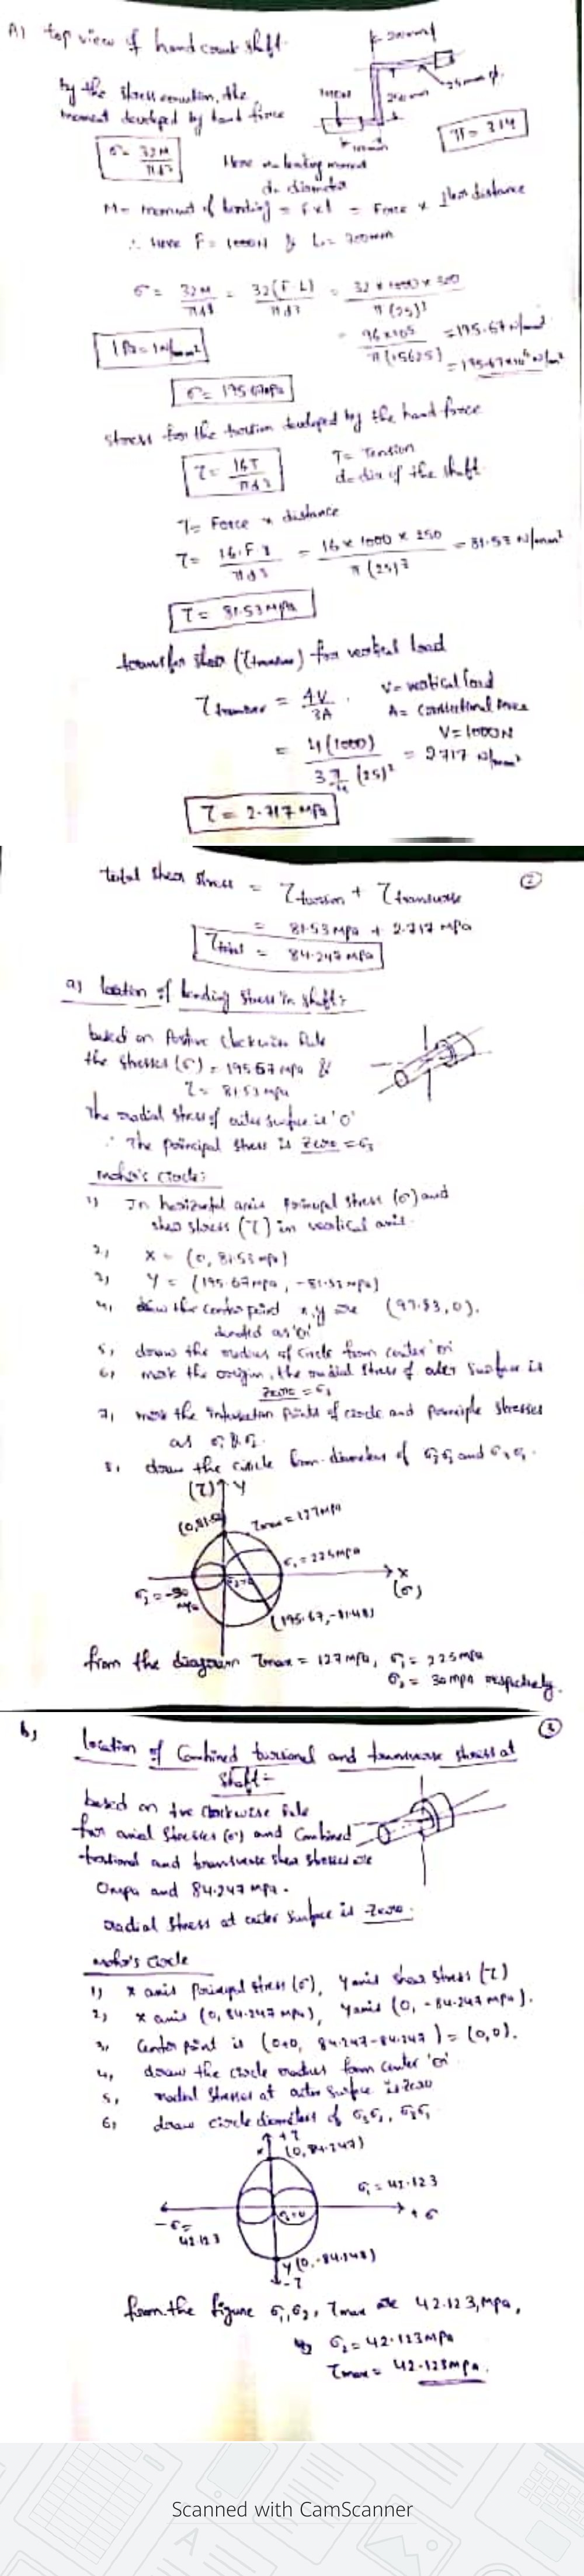 A) top view of hand crank shaft.
by the stress equation, the
moment developed by hand force
σ = 32M / πd³
π = 3.14
Here M = bending moment
d = diameter
M = moment of bending = F x l = Force x distance
∴ Here F = 1000N & L = 300mm
σ = 32M / πd³ = 32(F·L) / πd³ = 32 x 1000 x 300 / π(25)³
= 96 x 10⁵ / π(15625) = 195.67 N/mm²
= 195.67 x 10⁶ N/m²
σ = 195.67 MPa
stress for the torsion developed by the hand force
τ = 16T / πd³
T = Tension
d = dia of the shaft
T = Force x distance
τ = 16·F·y / πd³ = 16 x 1000 x 250 / π(25)³ = 81.53 N/mm²
τ = 81.53 MPa
for vertical load
= 4V / 3A
V = vertical load
V = 1000N
= 4(1000) / 3 π/4 (25)² = 2.717 N/mm²
τ = 2.717 MPa
②
total shear stress = τ torsion + τ transverse
= 81.53 MPa + 2.717 MPa
τ total = 84.247 MPa
a) location of bending stress in shaft:
based on Positive clockwise Rule
the stresses (σ) = 195.67 MPa &
τ = 81.53 MPa
The radial stress of outer surface is '0'
∴ The principal stress is Zero = σ₃
mohr's circle:
1) In horizontal axis Principal stress (σ) and
shear stress (τ) in vertical axis.
2) X = (0, 81.53 MPa)
3) Y = (195.67 MPa, -81.53 MPa)
4) draw the centre point x, y are (97.83, 0).
denoted as 'on'
5) draw the radius of circle from center 'on'
6) mark the origin, the radial stress of outer surface is
zero = σ₃
7) mark the intersection points of circle and principle stresses
as σ₁ & σ₂.
8) draw the circle from diameters of
(τ) Y
(0, 81.5
τmax = 127 MPa
σ₁ = 225 MPa
X
(σ)
σ₂ = -30 MPa
(195.67, -81.48)
from the diagram τmax = 127 MPa, σ₁ = 225 MPa
σ₂ = 30 MPa respectively.
③
b) location of Combined torsional and transverse stress at
shaft:-
based on +ve clockwise Rule
for axial stresses (σ) and Combined
torsional and transverse shear stresses are
0 MPa and 84.247 MPa.
radial stress at outer surface is Zero.
mohr's circle
1) x axis Principal stress (σ), Y axis shear stress (τ)
2) x axis (0, 84.247 MPa), Y axis (0, -84.247 MPa).
3) Center point is (0+0, 84.247-84.247) = (0,0).
4) draw the circle radius from center 'on'
5) radial stresses at outer surface is zero
6) draw circle diameters of
+τ
(0, 84.247)
σ₁ = 42.123
+σ
-σ =
42.123
Y (0, -84.148)
-τ
from the figure σ₁, σ₂, τmax are 42.123, MPa,
σ₂ = 42.123 MPa
τmax = 42.123 MPa.
Scanned with CamScanner